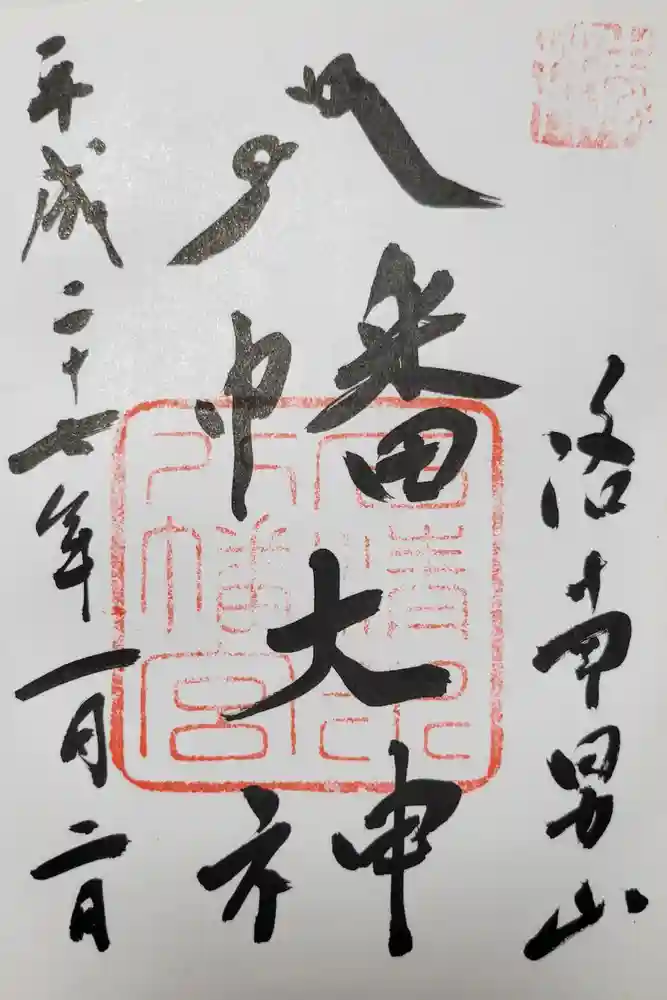 洛南男山
八幡大神
平成二十七年一月二日
石清水
八幡宮